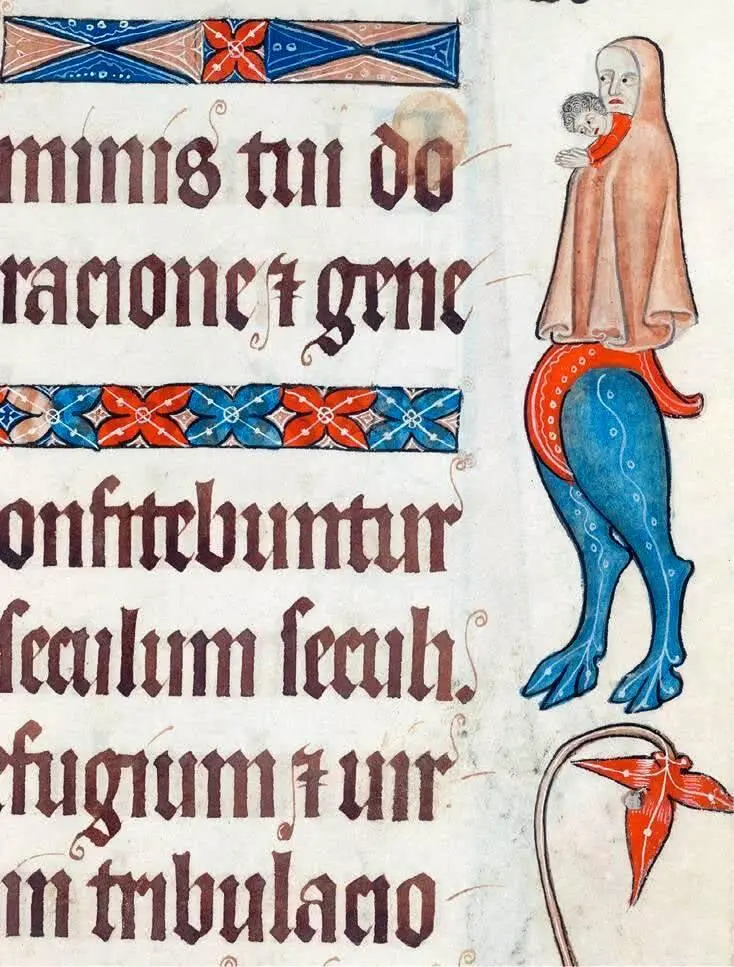 minis tui do
racione ⁊ gene
onfitebuntur
seculum seculi.
efugium ⁊ uir
in tribulacio